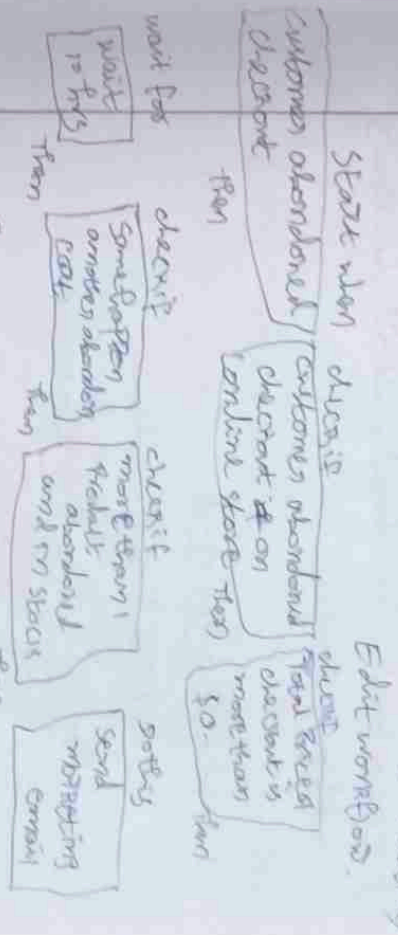 Edit workflow.
Start when
Customer abandoned
checkout
then
check if
Customer abandoned
checkout is on
online store
then
check if
Total price
checkout is
more than
$0.
then
wait for
wait
10 hrs
Then
check if
another abandon
cart
then
check if
more than 1
Product
abandoned
and in stock
do this
Send
marketing
email